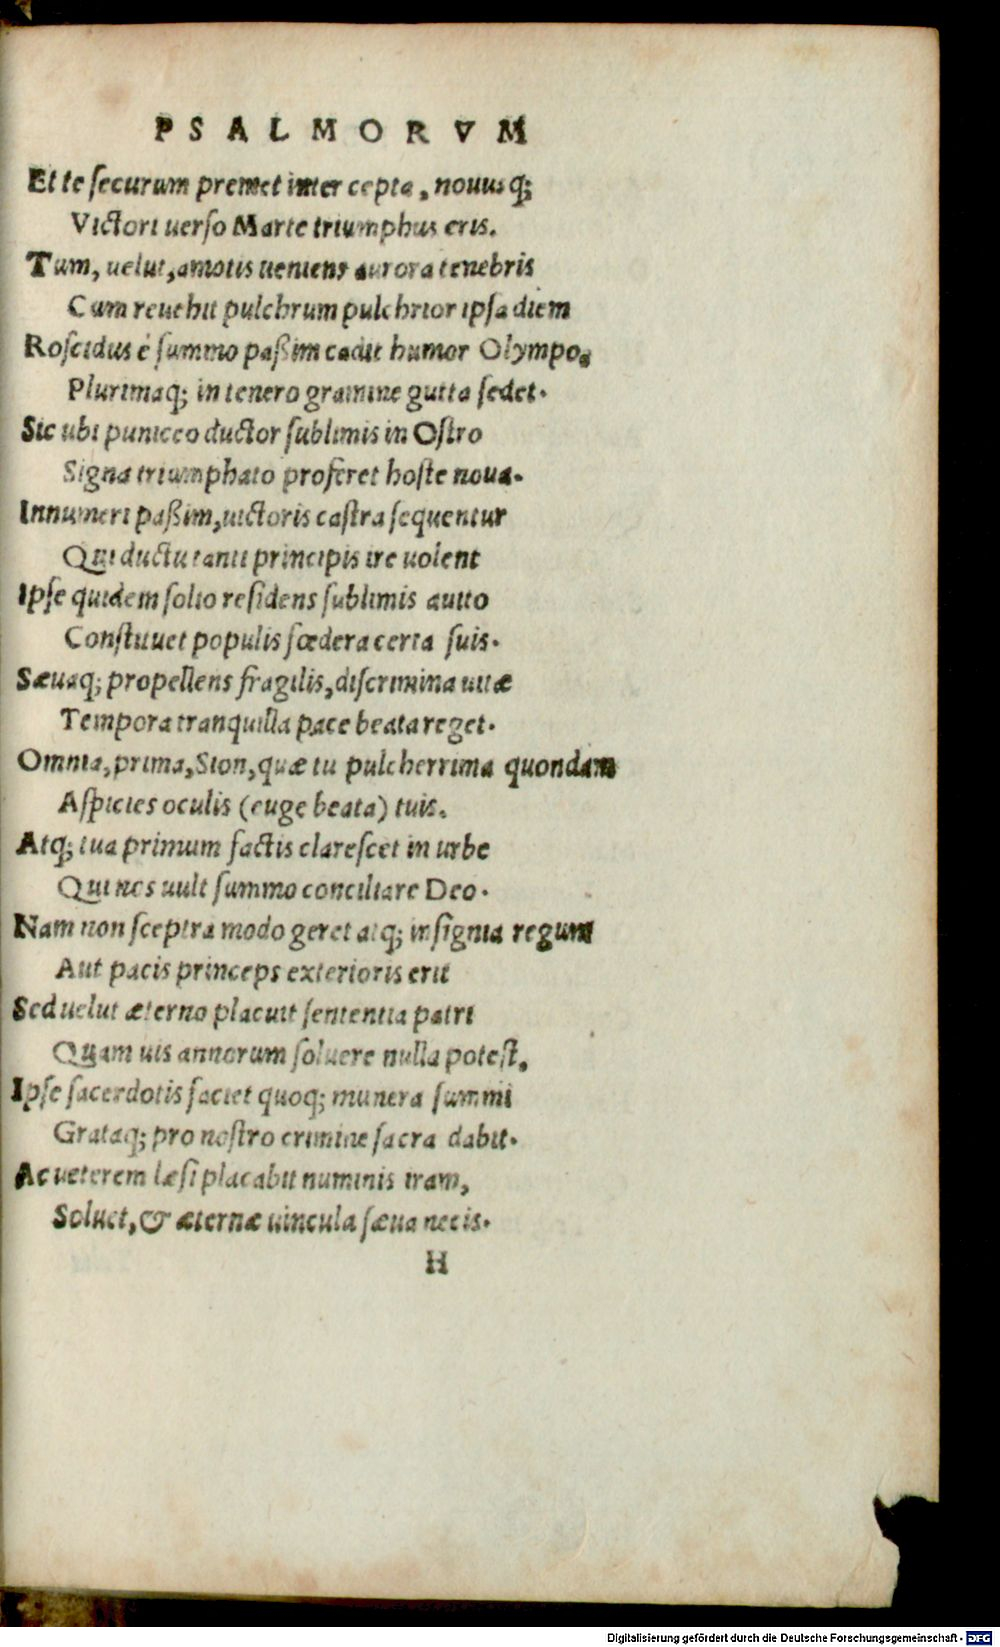 PSALMORVM
Et te ſecurum premet inter cepta, nouusq;
Victori uerſo Marte triumphus eris.
Tum, uelut, amotis ueniens aurora tenebris
Cum reuehit pulchrum pulchrior ipſa diem
Roſcidus è ſummo paßim cadit humor Olympo,
Plurimaq; in tenero gramine gutta ſedet.
Sic ubi puniceo ductor ſublimis in Oſtro
Signa triumphato proferet hoſte noua.
Innumeri paßim, uictoris caſtra ſequentur
Qui ductu tanti principis ire uolent
Ipſe quidem ſolio reſidens ſublimis auito
Conſtituet populis fœdera certa ſuis.
Sæuaq; propellens fragilis, diſcrimina uitæ
Tempora tranquilla pace beata reget.
Omnia, prima, Sion, quæ tu pulcherrima quondam
Aſpicies oculis (euge beata) tuis.
Atq; tua primum factis clareſcet in urbe
Qui nos uult ſummo conciliare Deo.
Nam non ſceptra modo geret atq; inſignia regum
Aut pacis princeps exterioris erit
Sed uelut æterno placuit ſententia patri
Quam uis annorum ſoluere nulla poteſt,
Ipſe ſacerdotis faciet quoq; munera ſummi
Grataq; pro noſtro crimine ſacra dabit.
Ac ueterem læſi placabit numinis iram,
Soluet, & æternæ uincula ſæua necis.
H
Digitalisierung gefördert durch die Deutsche Forschungsgemeinschaft - DFG